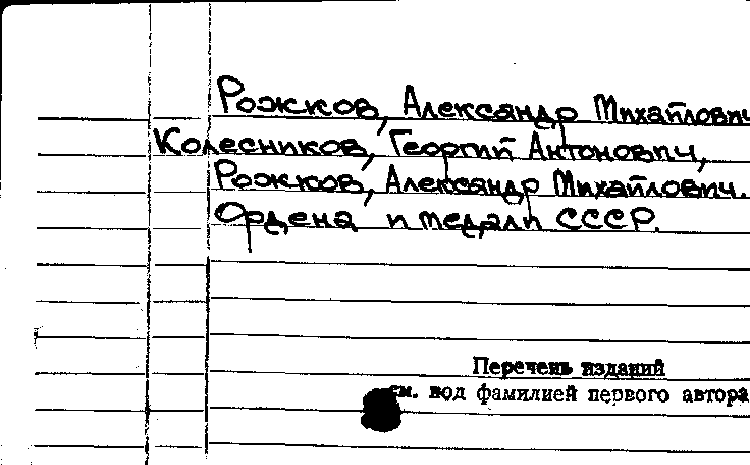 Рожков, Александр Михайлович
Колесников, Георгий Антонович,
Рожков, Александр Михайлович.
Ордена и медали СССР.
Перечень изданий
см. под фамилией первого автора